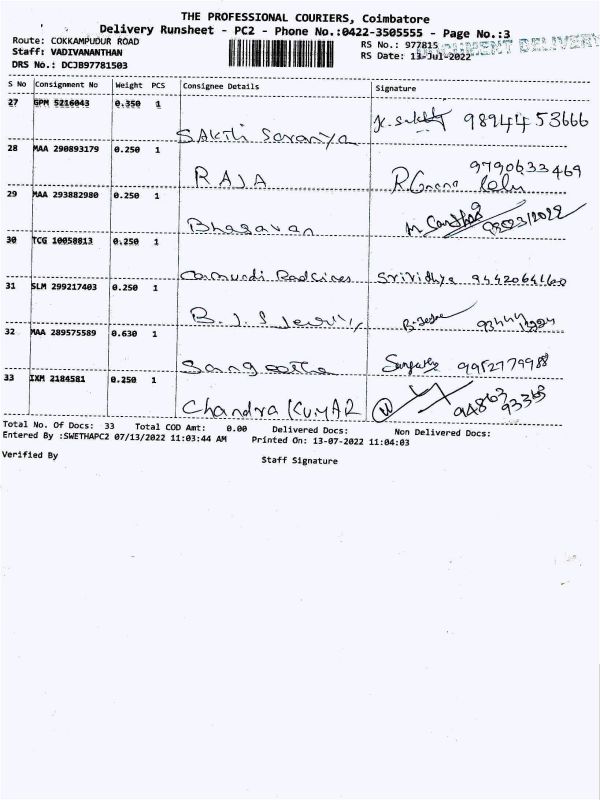 THE PROFESSIONAL COURIERS, Coimbatore
Delivery Runsheet - PC2 - Phone No.:0422-3505555 - Page No.:3
Route: COKKAMPUDUR ROAD RS No.: 977815 DOCUMENT DELIVERY
Staff: VADIVANANTHAN RS Date: 13-Jul-2022
DRS No.: DCJB97781503
S No Consignment No Weight PCS Consignee Details Signature
27 GPM 5216043 0.350 1
SAkthi Saranya 98944 53666
28 MAA 290893179 0.250 1
RAJA 9790633469
29 MAA 293882980 0.250 1
Bhagavan
30 TCG 10050813 0.250 1
Srividhya 9442064160
31 SLM 299217403 0.250 1
B.J.S
32 MAA 289575589 0.630 1
Sangeetha 9952779988
33 IXM 2184581 0.250 1
Chandra KUMAR 94863 93365
Total No. Of Docs: 33 Total COD Amt: 0.00 Delivered Docs: Non Delivered Docs:
Entered By :SWETHAPC2 07/13/2022 11:03:44 AM Printed On: 13-07-2022 11:04:03
Verified By Staff Signature